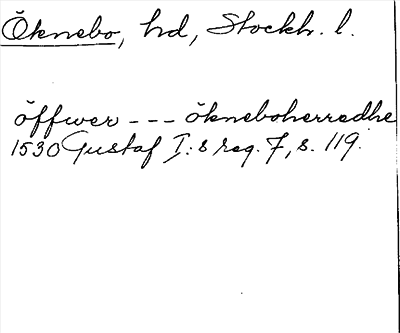 Öknebo, hd, Stockh. l.
öffwer --- ökneboherradhe
1530 Gustaf I:s reg. 7, s. 119.